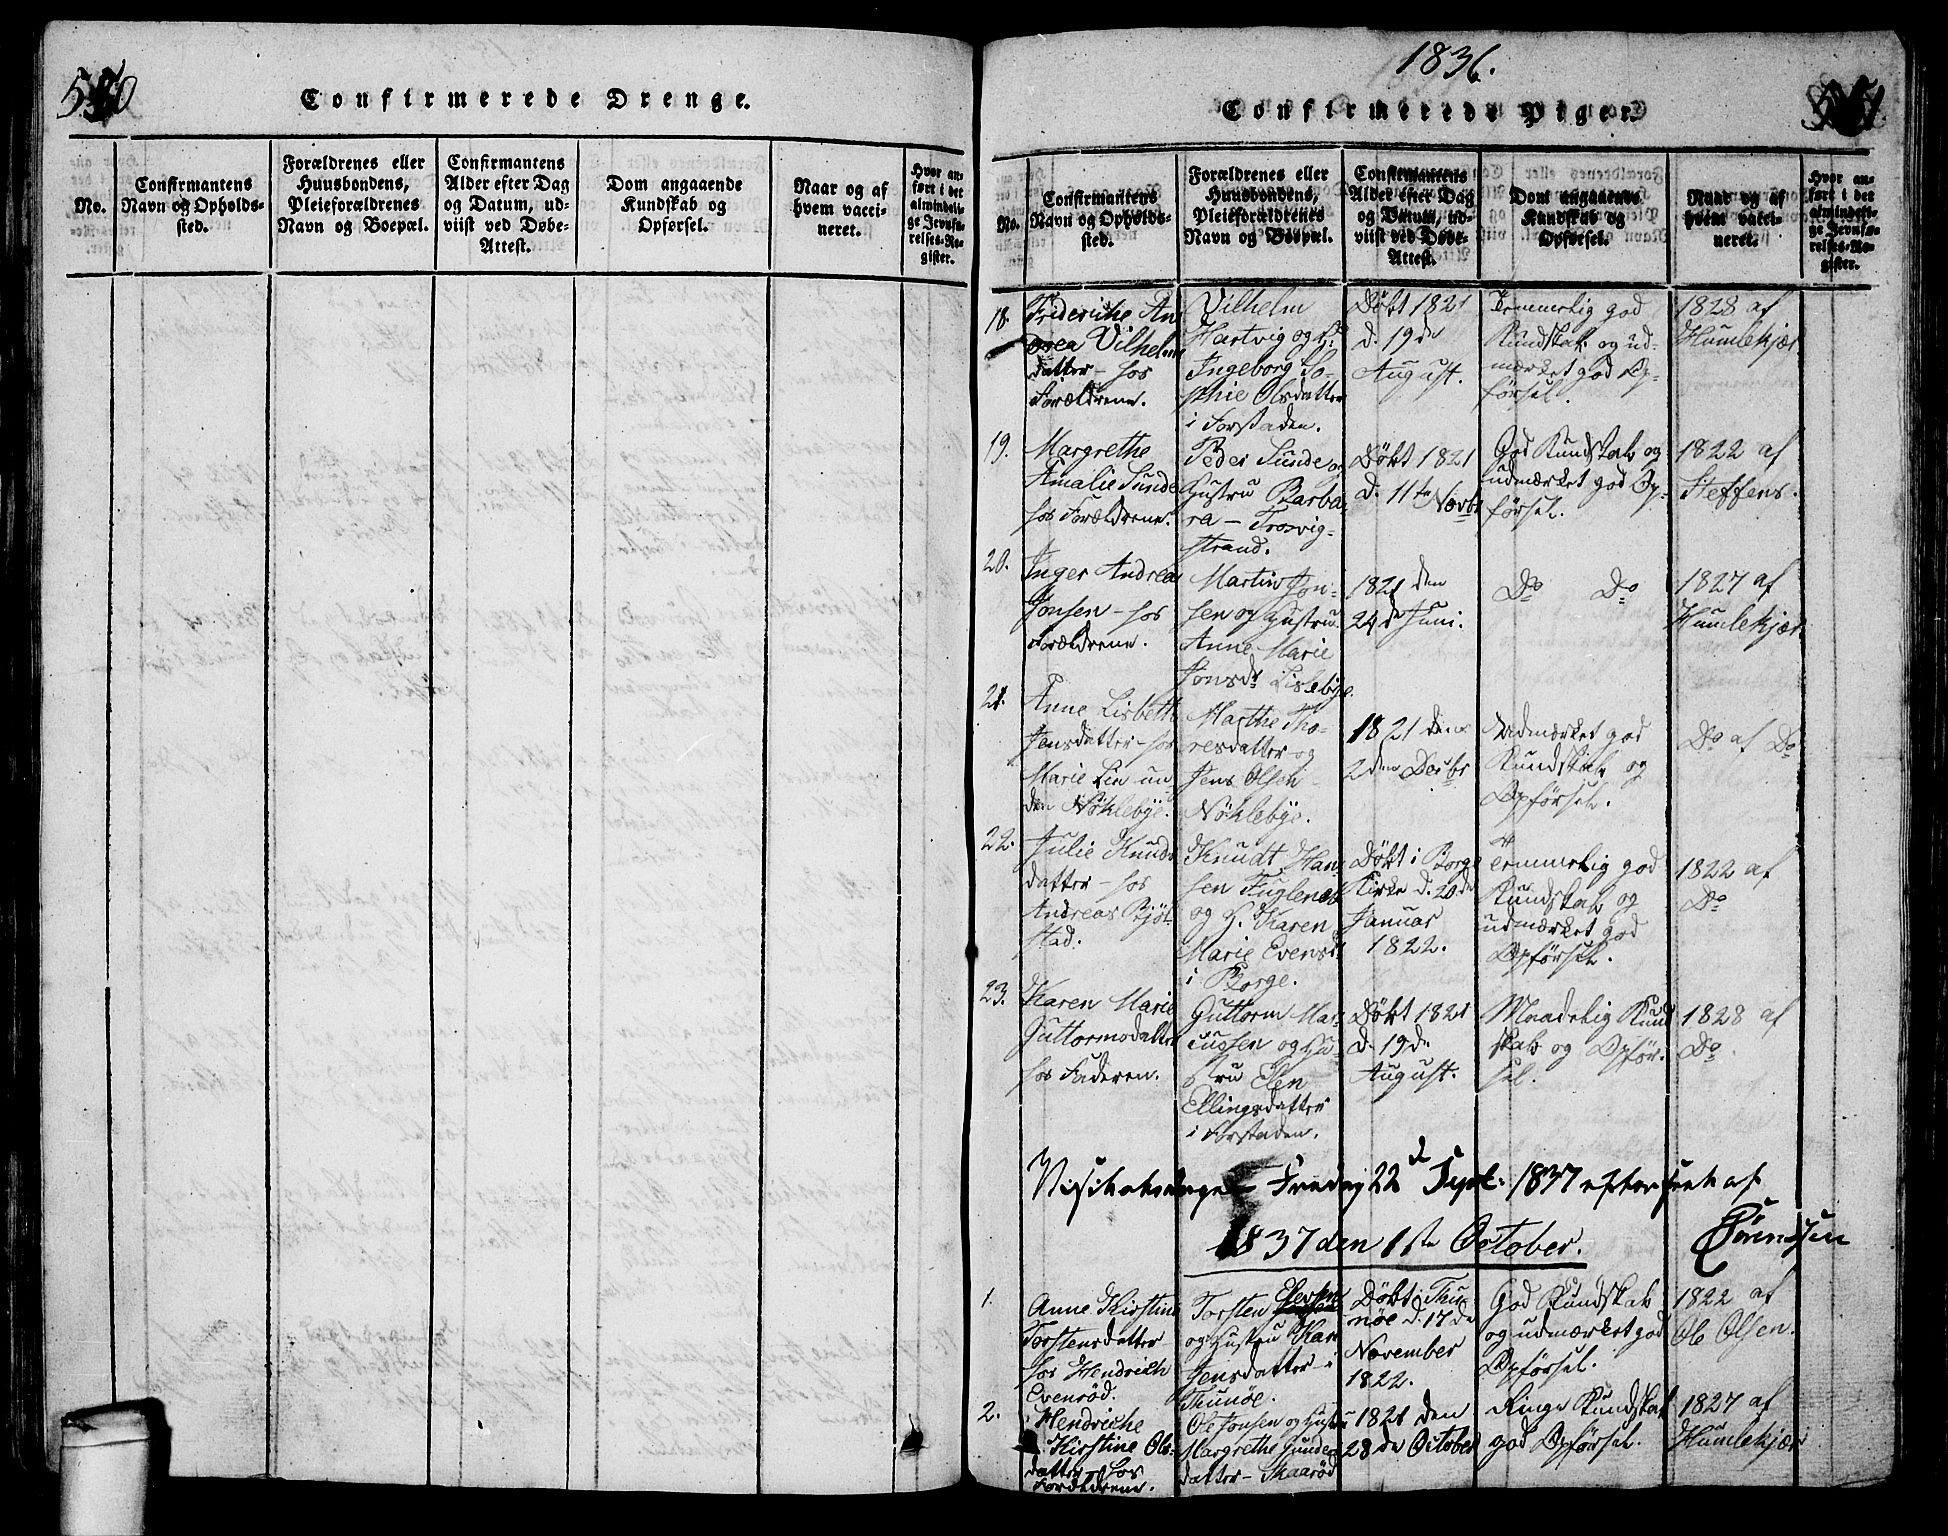 550
Confirmerede Drenge.
No.
Confirmantens
Navn og Opholds-
sted.
Forældrenes eller
Huusbondens,
Pleieforældrenes
Navn og Boepæl.
Confirmantens
Alder efter Dag
og Datum, ud-
viist ved Døbe-
Attest.
Dom angaaende
Kundskab og
Opførsel.
Naar og af
hvem vacci-
neret.
Hvor an-
ført i det
almindeli-
ge Jevnfø-
relses-Re-
gister.
1836.
Confirmerede Piger.
551.
No.
Confirmantens
Navn og Opholds-
sted.
Forældrenes eller
Huusbondens,
Pleieforældrenes
Navn og Boepæl.
Confirmantens
Alder efter Dag
og Datum, ud-
viist ved Døbe-
Attest.
Dom angaaende
Kundskab og
Opførsel.
Naar og af
hvem vacci-
neret.
Hvor an-
ført i det
almindeli-
ge Jevnfø-
relses-Re-
gister.
18.
Friderikke An
drea Vilhelm
datter – hos
Forældrene.
Vilhelm
Hartvig og H.
Ingeborg So-
phie Olsdatter
i Forstaden.
Døbt 1821
d. 19de
August.
Temmelig god
Kundskab og ud-
mærket god Op-
førsel.
1828 af
Humlekjær
19.
Margrethe
Amalie Sunde
hos Forældrene.
Peder Sunde og
Hustru Barba
ra – Trosvig-
strand.
Døbt 1821
d. 11te Novbr
God Kundskab og
udmærket god Op-
førsel.
1822 af
Steffens.
20.
Inger Andrea
Jonsen – hos
Forældrene.
Martin Jon-
sen og Hustru
Anne Marie
Jonsdr Lislebye.
1821 den
24de Juni.
Do Do
1827 af
Humlekjær
21.
Anne Lisbeth
Jensdatter – hos
Marie Lie un-
den Nøklebye.
Marthe Tho-
resdatter og
Jens Olsen –
Nøklebye.
1821 den
2den Decbr
Udmærket god
Kundskab og
Opførsel.
Do af Do
22.
Julie Knuds
datter – hos
Andreas Bjøl
stad.
Knudt Han
sen Fuglenæb
og H. Karen
Marie Evensd.
i Borge.
Døbt i Borge
Kirke d. 20de
Januar
1822.
Temmelig god
Kundskab og
udmærket god
Opførsel.
1822 af
Do
23.
Karen Marie
Guttormsdatter
hos Faderen.
Guttorm Mar-
cussen og Hu-
stru Elen
Ellingsdatter
i Forstaden.
Døbt 1821
d. 19de
August.
Maadelig Kund
skab og Opfør-
sel.
1828 af
Do.
Fredag 22d Sept: 1837 efterseet af
Sørenssen
1837 den 1ste October.
1.
Anne Kirstine
Torstensdatter
hos Hendrich
Evenrød.
Torsten Elevsen
og Hustru Kari
Jensdatter i
Thunøe.
Døbt i Thu-
nøe d. 17de
November
1822.
God Kundskab
og udmærket god
Opførsel.
1822 af
Ole Olsen.
2.
Hendriche
Kirstine Ols-
datter hos
Forældrene.
Ole Jonsen og Hustru
Margrethe Gunder
datter – Skaarød
1821 den
28de October
Ringe Kundskab
god Opførsel.
1827 af
Humlekjær